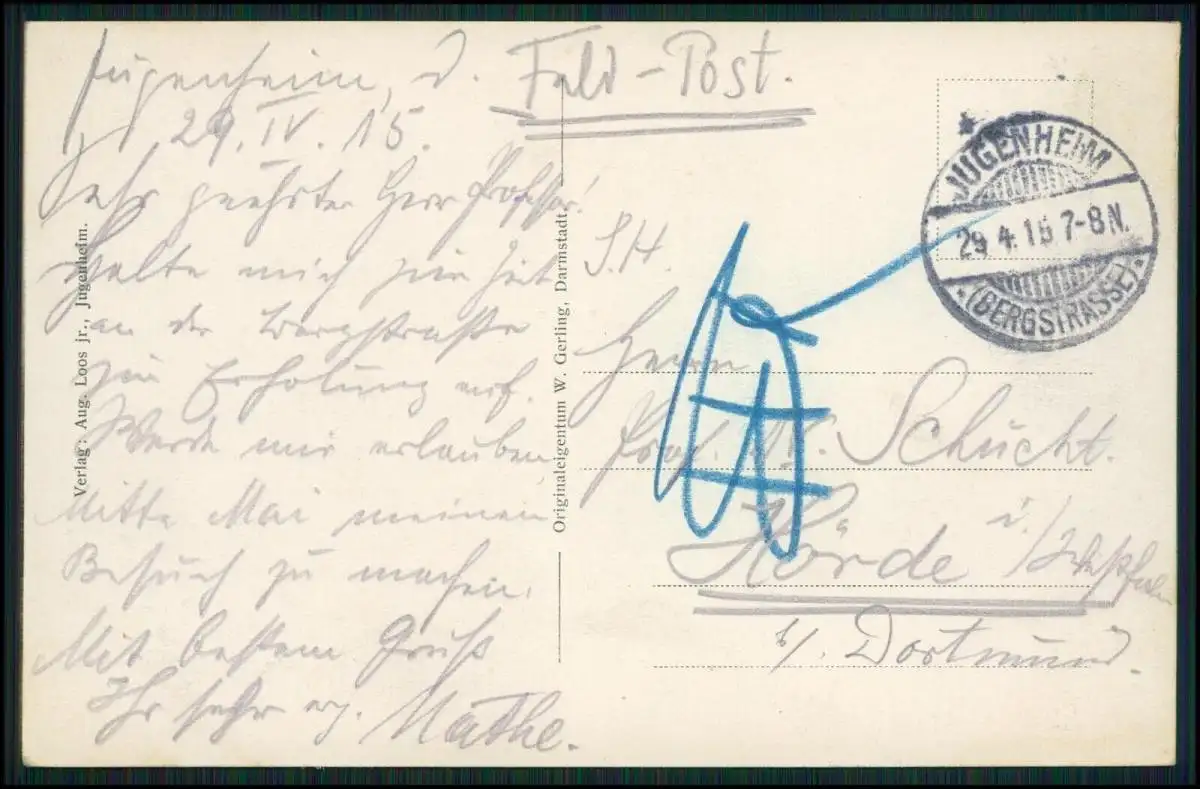 Jugenheim, d.
29. IV. 15.
Sehr geehrter Herr Professor!
Halte mich zur Zeit
an der Bergstraße
zur Erholung auf.
Werde mir erlauben
Mitte Mai meinen
Besuch zu machen.
Mit bestem Gruß
Ihr sehr erg. Mathe.
Feld-Post.
S. H.
Herrn
Prof. Dr. Schücht.
Hörde i./Westfalen
b/. Dortmund.
JUGENHEIM
29.4.15 7-8N.
(BERGSTRASSE)
Verlag: Aug. Loos jr., Jugenheim.
Originaleigentum W. Gerling, Darmstadt.